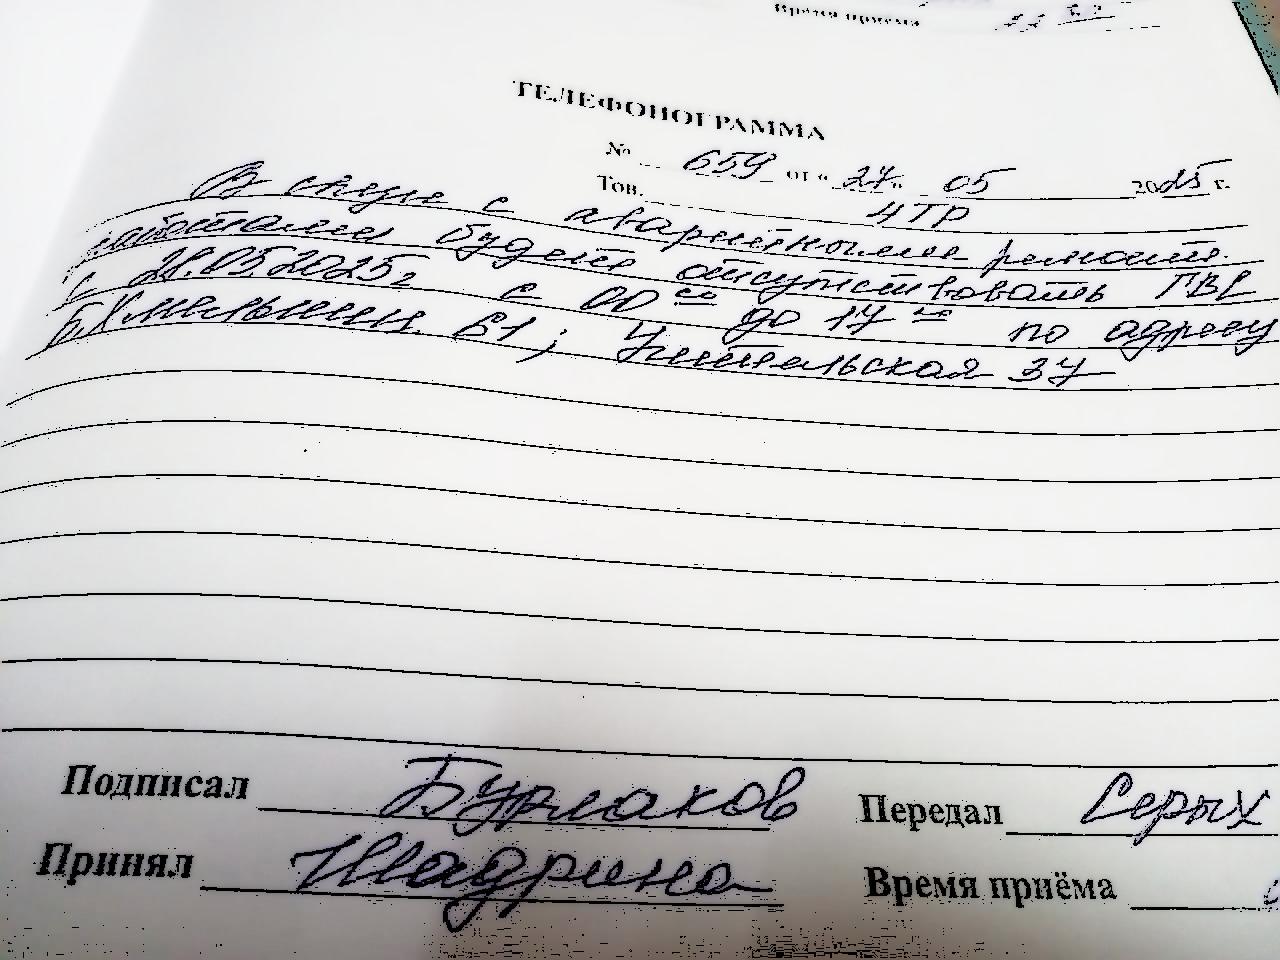 Время приёма
ТЕЛЕФОНОГРАММА
№ 659 от «27» 05 2025 г.
Тов. 4ТР
В связи с аварийными ремонт.
работами будет отсутствовать ГВС
с 28.05.2025г с 00 00 до 17 00 по адресу
Б.Хмельницк 61; Учительская 37
Подписал Бурлаков Передал Серых
Принял Шадрина Время приёма